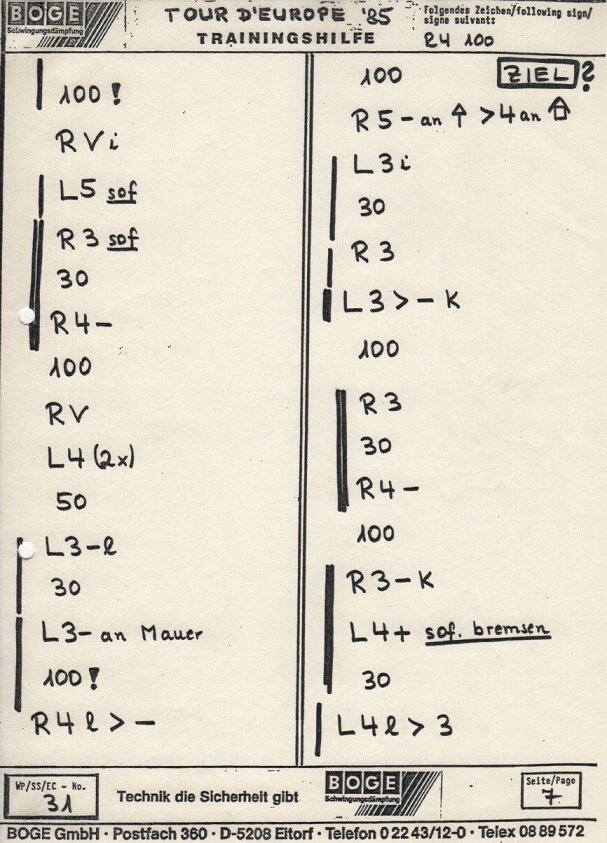 BOGE
Schwingungsdämpfung
TOUR D'EUROPE '85
TRAININGSHILFE
Folgendes Zeichen/following sign/
signe suivant:
24 100
100!
RVi
L5 sof
R3 sof
30
R4-
100
RV
L4 (2x)
50
L3-l
30
L3- an Mauer
100!
R4l>-
100 ZIEL?
R5- an ↑ >4 an ⇧
L3i
30
R3
L3>-K
100
R3
30
R4-
100
R3-K
L4+ sof. bremsen
30
L4l>3
WP/SS/EC - No.
31
Technik die Sicherheit gibt
BOGE
Schwingungsdämpfung
Seite/Page
7
BOGE GmbH · Postfach 360 · D-5208 Eitorf · Telefon 0 22 43/12-0 · Telex 08 89 572